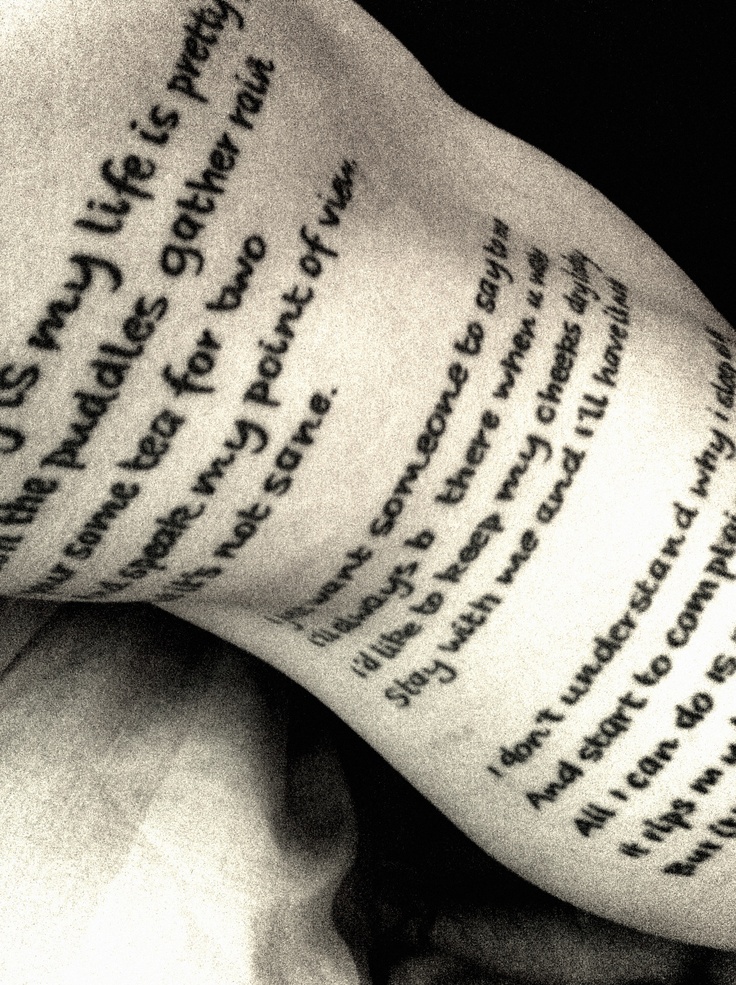 is my life is pretty
the puddles gather rain
some tea for two
speak my point of view
it's not sane.
want someone to say to
always b there when u
i'd like to keep my cheeks dry
Stay with me and i'll have
I don't understand why i sleep
And start to complain
All i can do is
it rips m
But